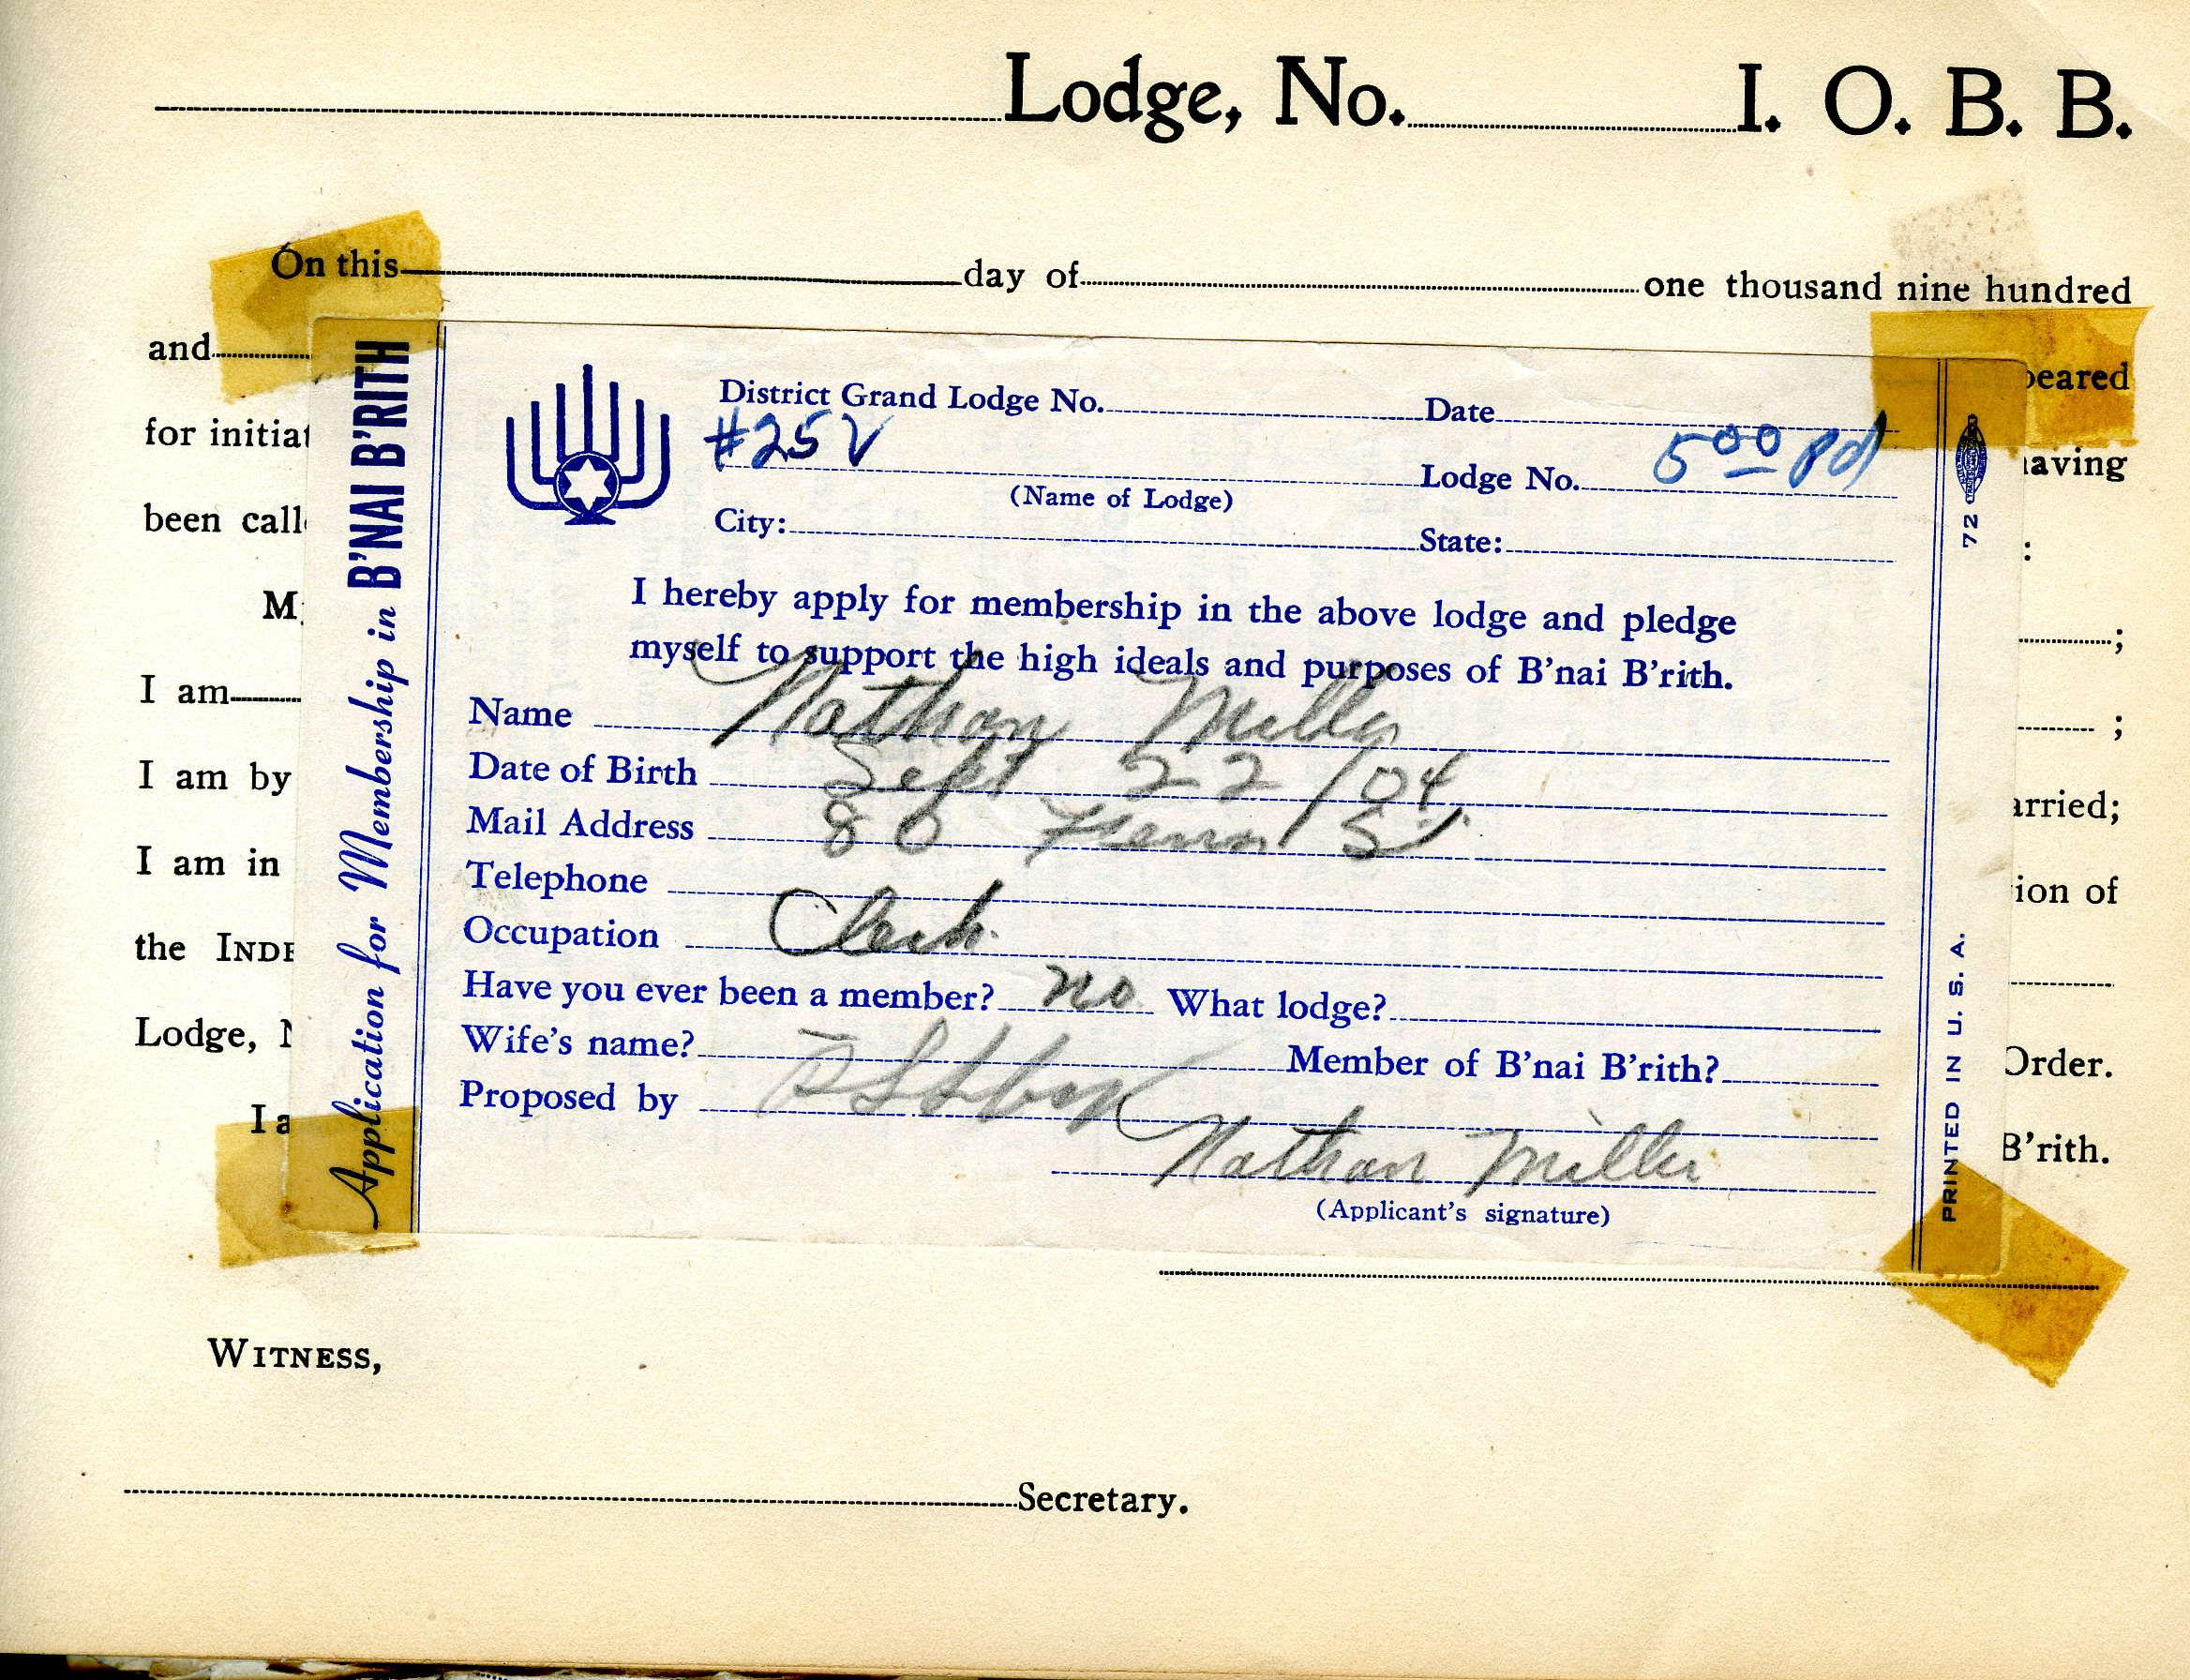 Lodge, No. I. O. B. B.
On this day of one thousand nine hundred
and peared
for initiat having
been call :
M ;
I am ;
I am by arried;
I am in ion of
the INDE
Lodge, N Order.
I a B'rith.
Application for Membership in B'NAI B'RITH
District Grand Lodge No. Date
#25 V 5 00 pd
(Name of Lodge) Lodge No.
City: State:
I hereby apply for membership in the above lodge and pledge
myself to support the high ideals and purposes of B'nai B'rith.
Name Nathan Miller
Date of Birth Sept 22 / 04
Mail Address 80 St.
Telephone
Occupation Clerk.
Have you ever been a member? no What lodge?
Wife's name? Member of B'nai B'rith?
Proposed by
Nathan Miller
(Applicant's signature)
72
PRINTED IN U. S. A.
WITNESS,
Secretary.